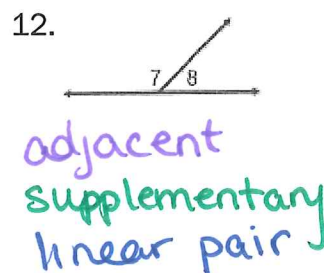 12.
7 8
adjacent
supplementary
linear pair